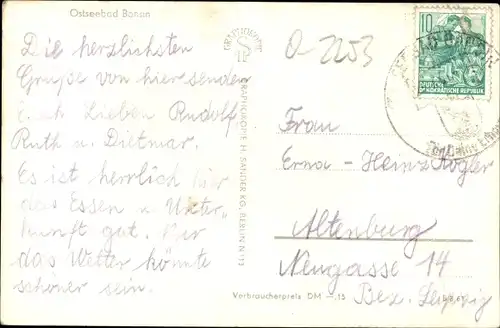 Ostseebad Bansin
Die herzlichsten
Grüße von hier senden
Euch Lieben Rudolf
Ruth u. Dietmar.
Es ist herrlich hier
das Essen u. Unter-
kunft gut. Nur
das Wetter könnte
schöner sein.
GRAPHOKOPIE
GRAPHOKOPIE H. SANDER KG, BERLIN N 113
O-2253
10
DEUTSCHE
DEMOKRATISCHE REPUBLIK
Frau
Erna-Heinz Kogler
Altenburg
Neugasse 14
Bez. Leipzig
Verbraucherpreis DM -.15